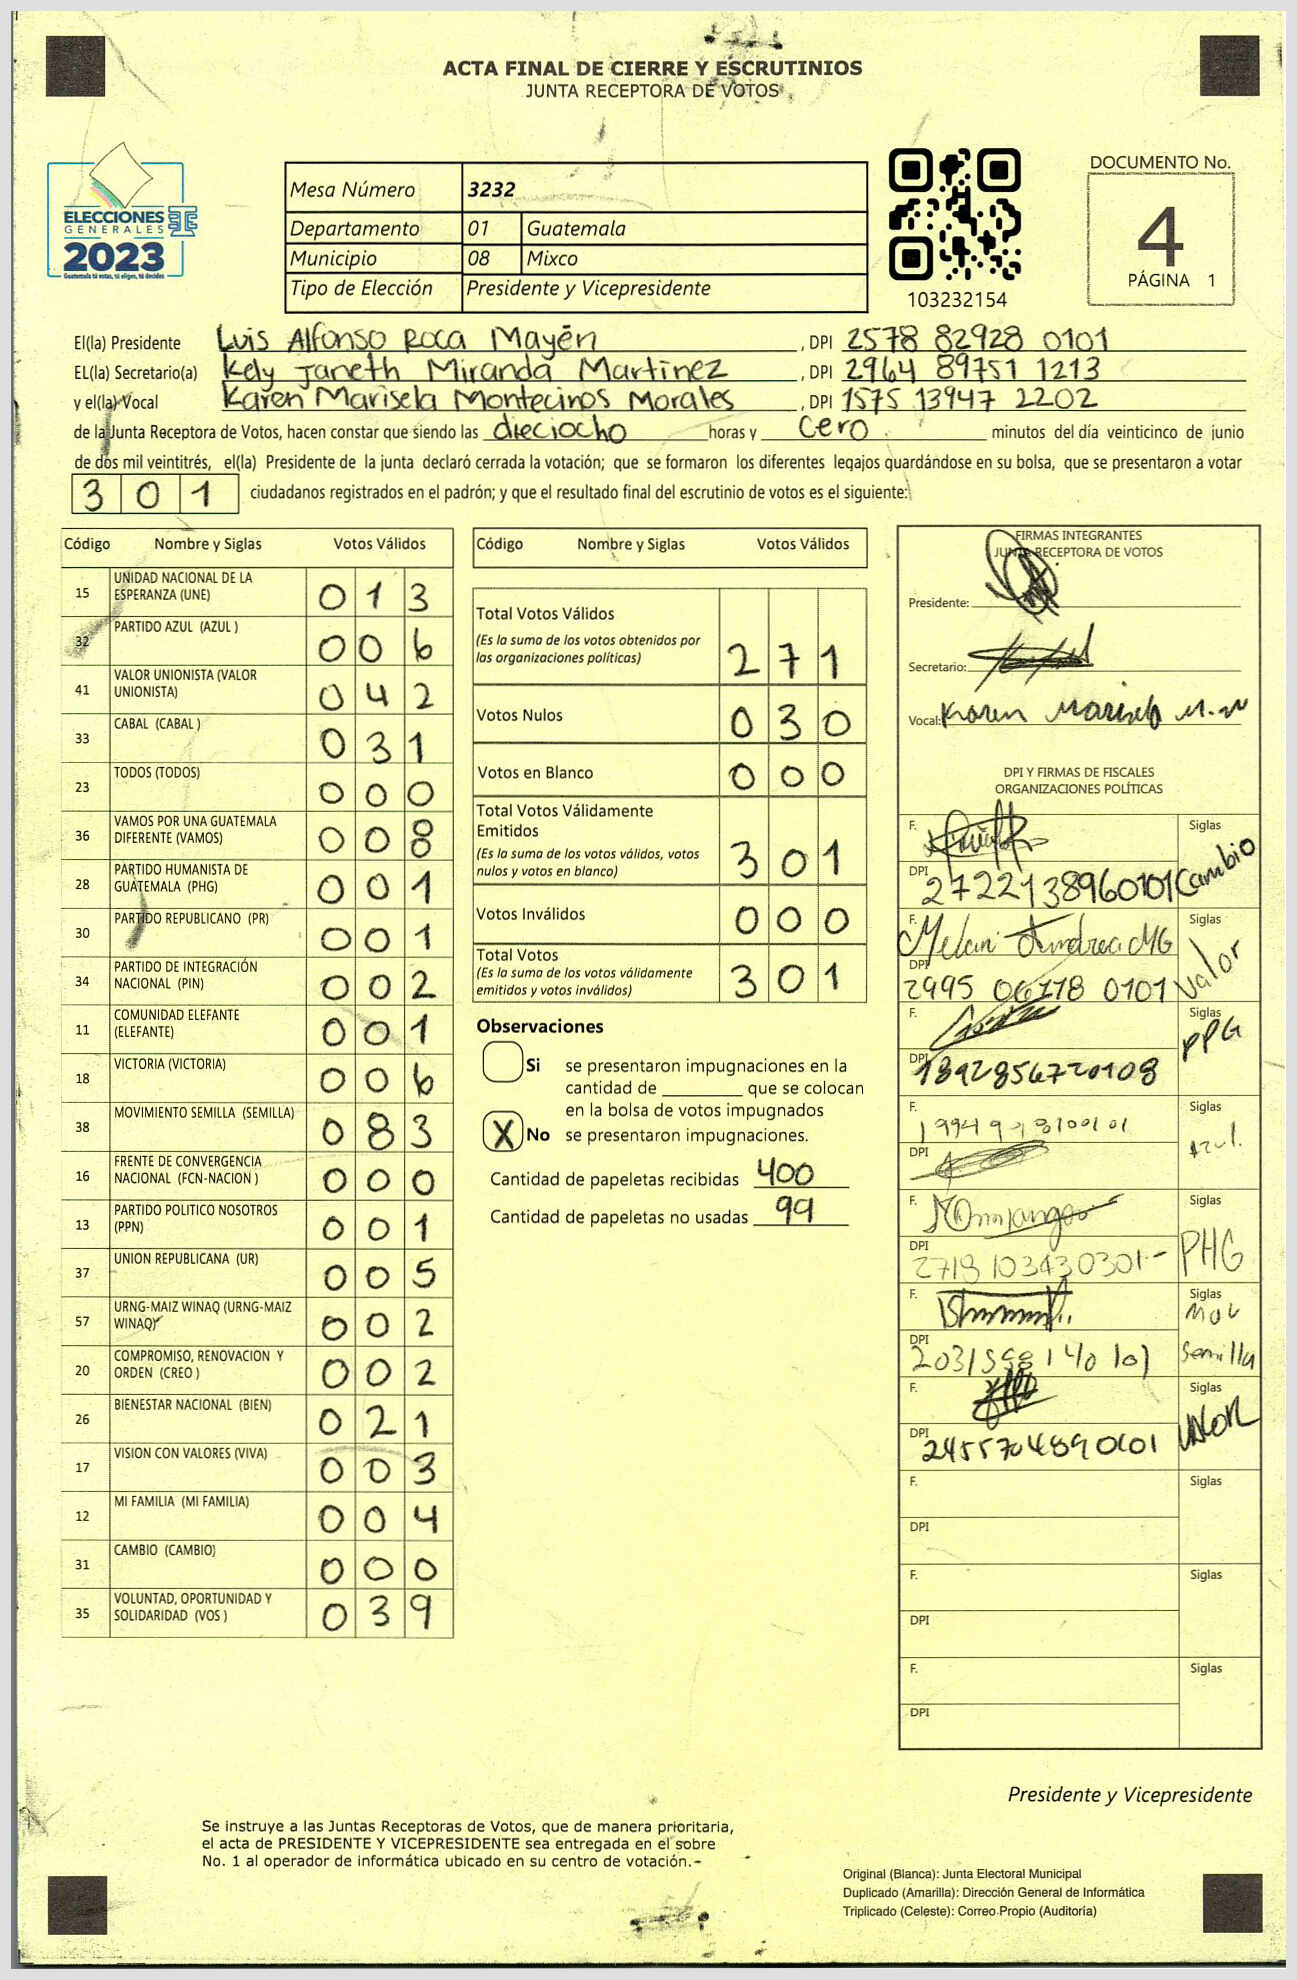 ACTA FINAL DE CIERRE Y ESCRUTINIOS
JUNTA RECEPTORA DE VOTOS
ELECCIONES
GENERALES
2023
Guatemala tú votas, tú eliges, tú decides
Mesa Número 3232
Departamento 01 Guatemala
Municipio 08 Mixco
Tipo de Elección Presidente y Vicepresidente
103232154
DOCUMENTO No.
4
PÁGINA 1
El(la) Presidente Luis Alfonso Roca Mayén , DPI 2578 82928 0101
EL(la) Secretario(a) Kely Janeth Miranda Martinez , DPI 2964 89751 1213
y el(la) Vocal Karen Marisela Montecinos Morales , DPI 1575 13947 2202
de la Junta Receptora de Votos, hacen constar que siendo las dieciocho horas y cero minutos del día veinticinco de junio
de dos mil veintitrés, el(la) Presidente de la junta declaró cerrada la votación; que se formaron los diferentes legajos guardándose en su bolsa, que se presentaron a votar
301 ciudadanos registrados en el padrón; y que el resultado final del escrutinio de votos es el siguiente:
Código Nombre y Siglas Votos Válidos
15 UNIDAD NACIONAL DE LA ESPERANZA (UNE) 013
32 PARTIDO AZUL (AZUL ) 006
41 VALOR UNIONISTA (VALOR UNIONISTA) 042
33 CABAL (CABAL ) 031
23 TODOS (TODOS) 000
36 VAMOS POR UNA GUATEMALA DIFERENTE (VAMOS) 008
28 PARTIDO HUMANISTA DE GUATEMALA (PHG) 001
30 PARTIDO REPUBLICANO (PR) 001
34 PARTIDO DE INTEGRACIÓN NACIONAL (PIN) 002
11 COMUNIDAD ELEFANTE (ELEFANTE) 001
18 VICTORIA (VICTORIA) 006
38 MOVIMIENTO SEMILLA (SEMILLA) 083
16 FRENTE DE CONVERGENCIA NACIONAL (FCN-NACION ) 000
13 PARTIDO POLITICO NOSOTROS (PPN) 001
37 UNION REPUBLICANA (UR) 005
57 URNG-MAIZ WINAQ (URNG-MAIZ WINAQ) 002
20 COMPROMISO, RENOVACION Y ORDEN (CREO ) 002
26 BIENESTAR NACIONAL (BIEN) 021
17 VISION CON VALORES (VIVA) 003
12 MI FAMILIA (MI FAMILIA) 004
31 CAMBIO (CAMBIO) 000
35 VOLUNTAD, OPORTUNIDAD Y SOLIDARIDAD (VOS ) 039
Código Nombre y Siglas Votos Válidos
Total Votos Válidos 271
(Es la suma de los votos obtenidos por
las organizaciones políticas)
Votos Nulos 030
Votos en Blanco 000
Total Votos Válidamente
Emitidos 301
(Es la suma de los votos válidos, votos
nulos y votos en blanco)
Votos Inválidos 000
Total Votos 301
(Es la suma de los votos válidamente
emitidos y votos inválidos)
Observaciones
Si se presentaron impugnaciones en la
cantidad de ________ que se colocan
en la bolsa de votos impugnados
X No se presentaron impugnaciones.
Cantidad de papeletas recibidas 400
Cantidad de papeletas no usadas 99
FIRMAS INTEGRANTES
JUNTA RECEPTORA DE VOTOS
Presidente:
Secretario:
Vocal: Karen
DPI Y FIRMAS DE FISCALES
ORGANIZACIONES POLÍTICAS
F. Siglas
DPI 2722138960101 Cambio
F. Siglas
DPI 2995 06178 0101 Valor
F. Siglas
DPI 1892856720108 PPG
F. Siglas
DPI Azul.
F. Siglas
DPI 2718103430301.- PHG
F. Siglas
DPI Mov Semilla
F. Siglas
DPI 2455704890101 VALOR
F. Siglas
DPI
F. Siglas
DPI
F. Siglas
DPI
Presidente y Vicepresidente
Se instruye a las Juntas Receptoras de Votos, que de manera prioritaria,
el acta de PRESIDENTE Y VICEPRESIDENTE sea entregada en el sobre
No. 1 al operador de informática ubicado en su centro de votación.-
Original (Blanca): Junta Electoral Municipal
Duplicado (Amarilla): Dirección General de Informática
Triplicado (Celeste): Correo Propio (Auditoría)